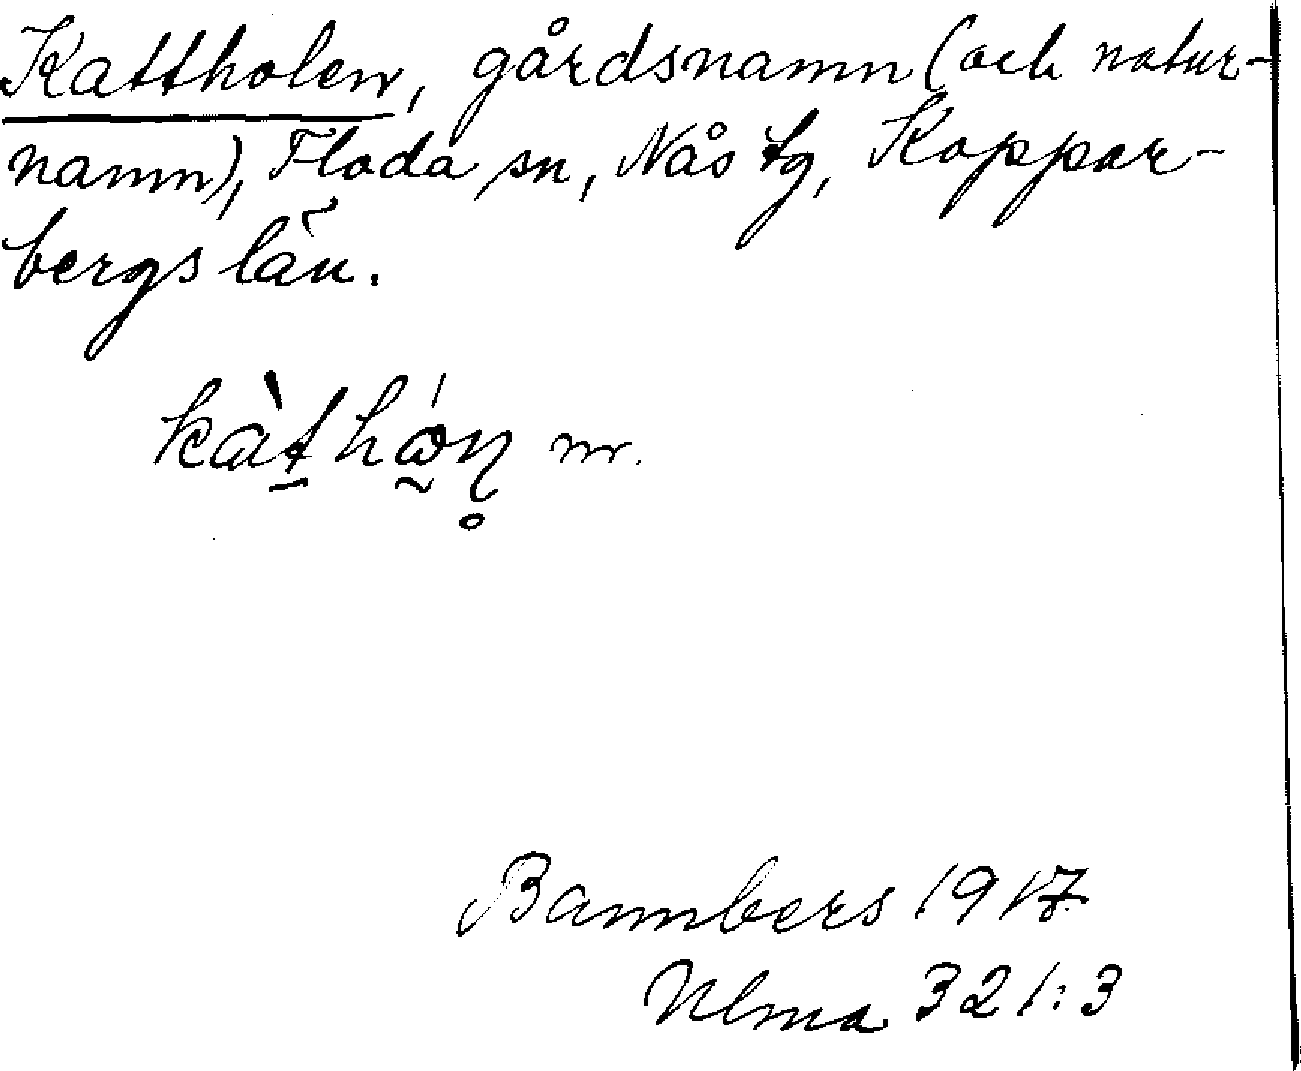 Kattholen, gårdsnamn (och natur-
namn), Floda sn, Nås tg, Koppar-
bergs län.
m.
Bannbers 1917
Ulma 321:3